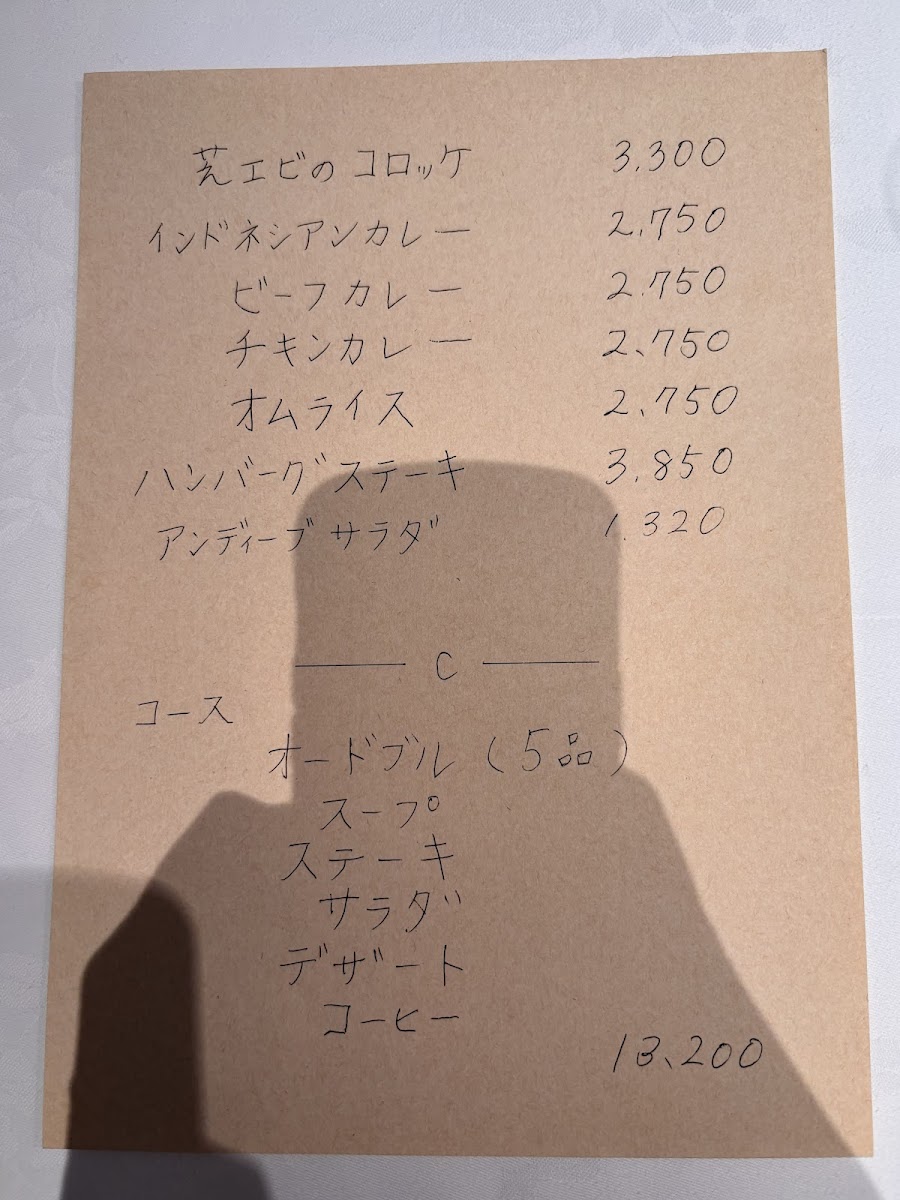 芝エビのコロッケ 3,300
インドネシアンカレー 2,750
ビーフカレー 2,750
チキンカレー 2,750
オムライス 2,750
ハンバーグステーキ 3,850
アンディーブサラダ 1,320
— C —
コース
オードブル（5品）
スープ
ステーキ
サラダ
デザート
コーヒー
13,200